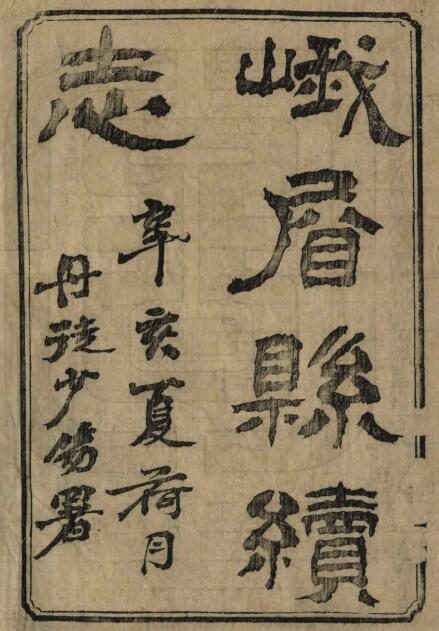 峨眉縣續
志
辛亥夏荷月
丹徒少傷署